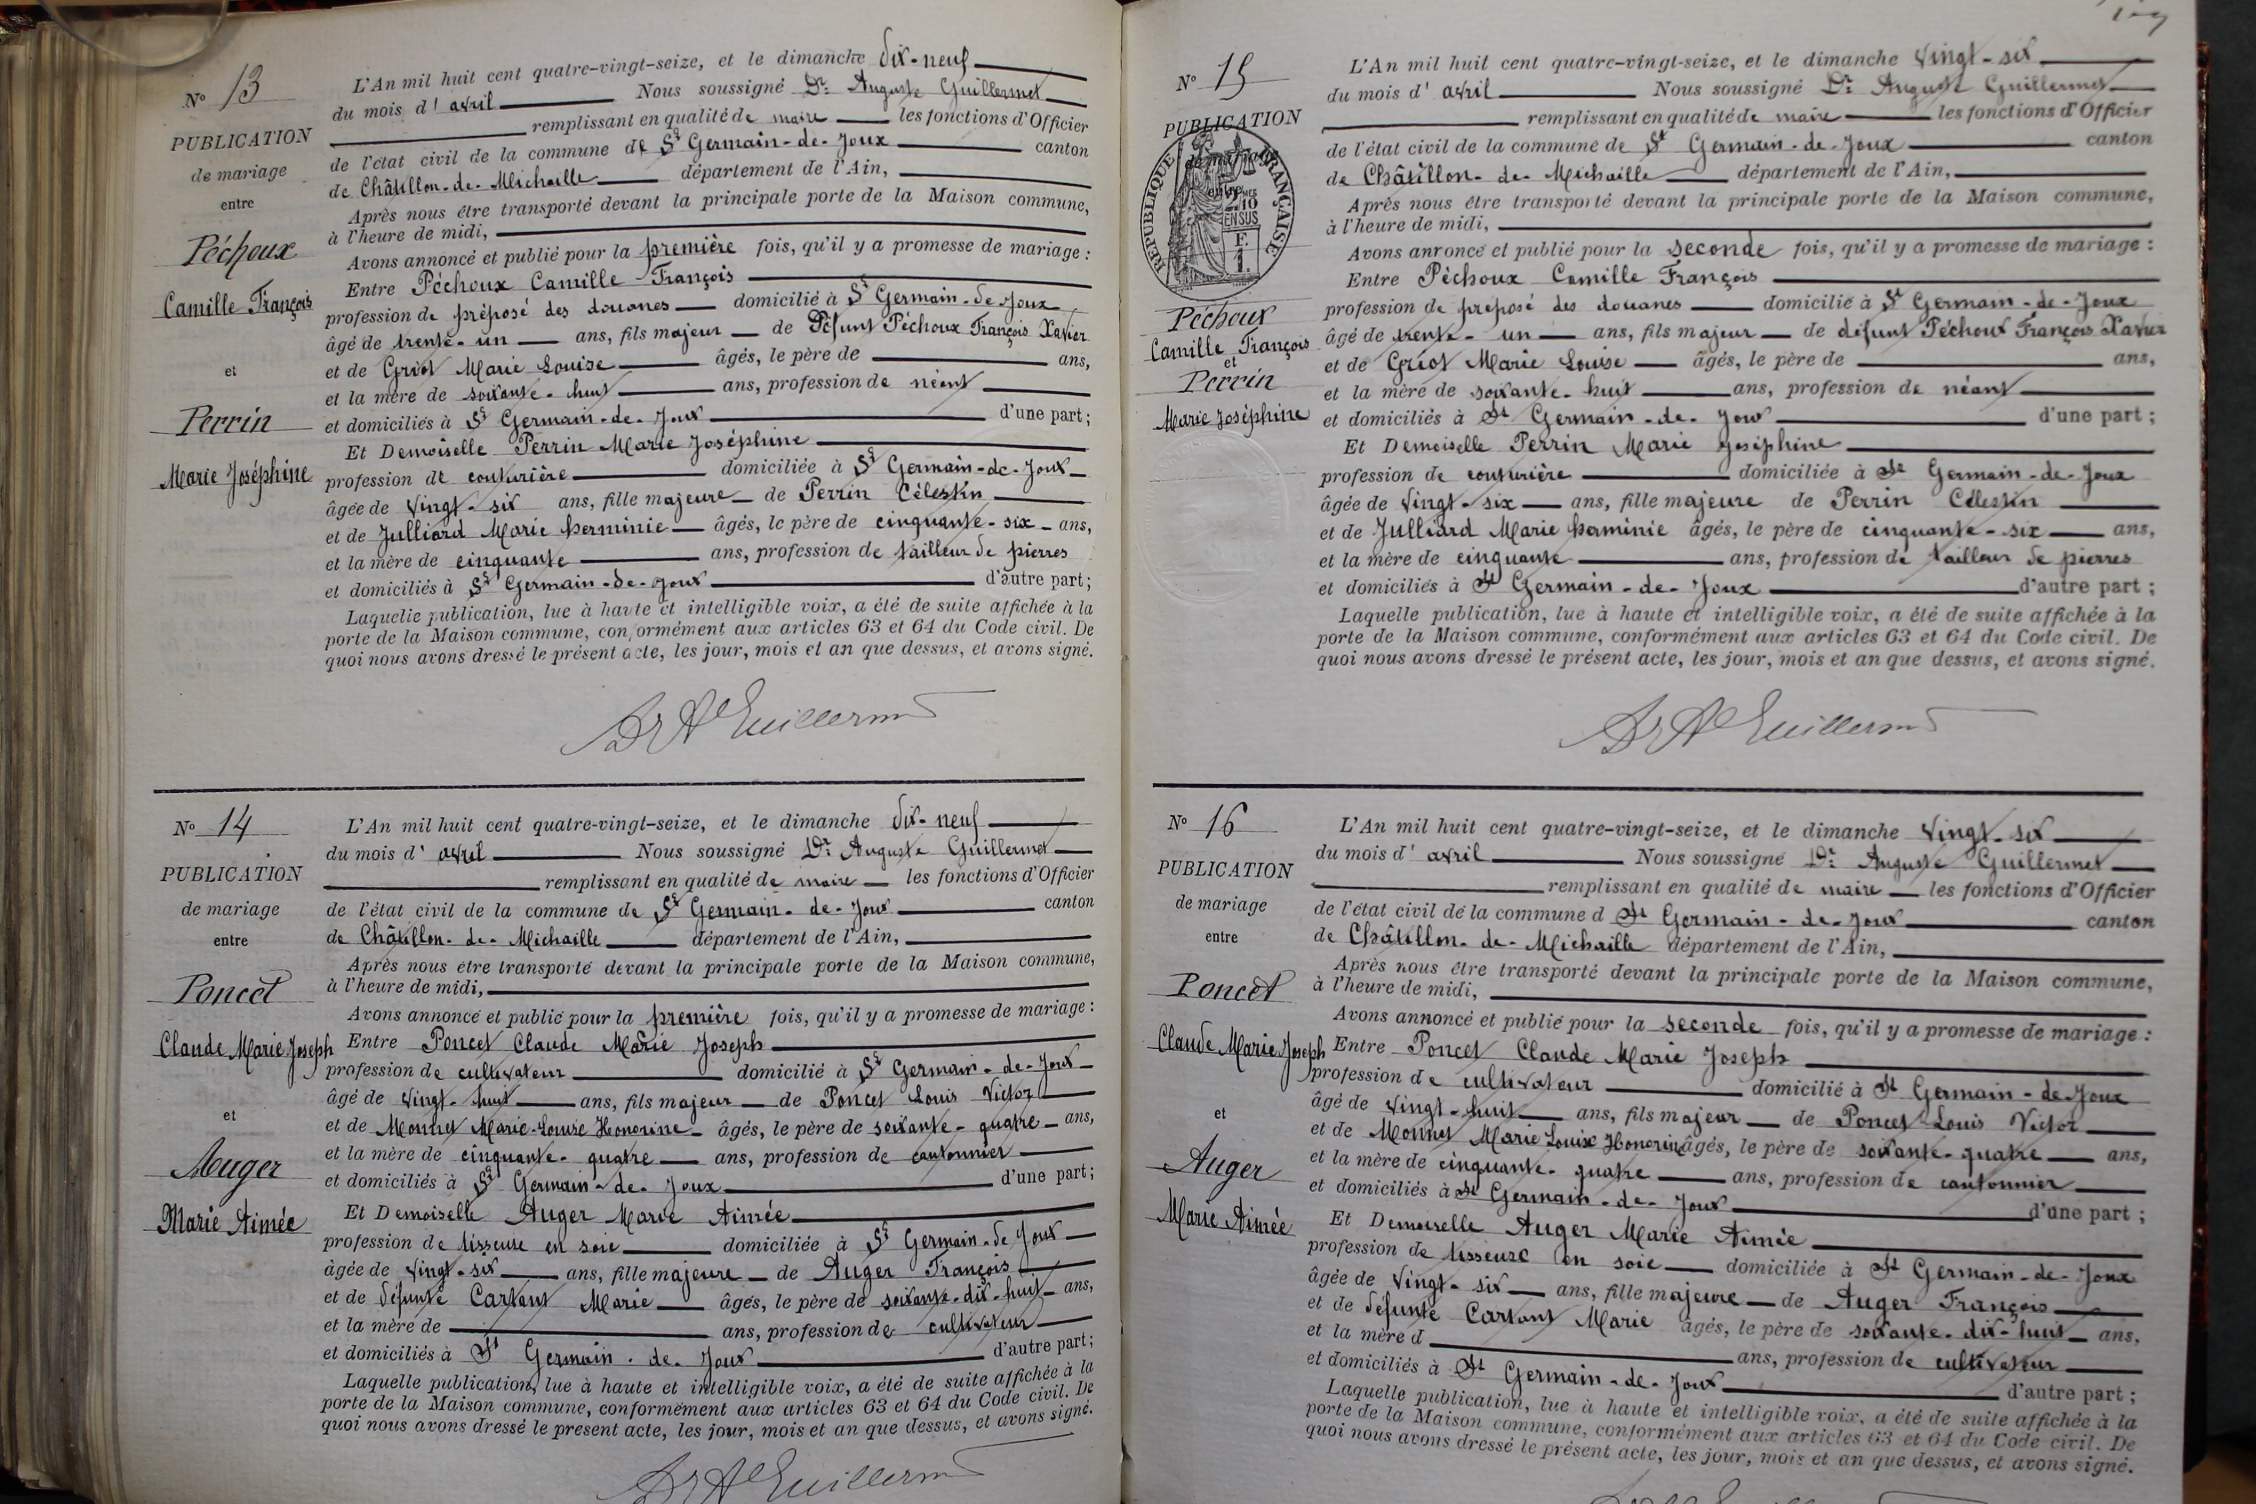 N° 13
PUBLICATION
de mariage
entre
Péchoux
Camille François
et
Perrin
Marie Joséphine
L'An mil huit cent quatre-vingt-seize, et le dimanche dix-neuf
du mois d'avril Nous soussigné Dr. Auguste Guillermet
remplissant en qualité de maire les fonctions d'Officier
de l'état civil de la commune de St Germain-de-Joux canton
de Châtillon-de-Michaille département de l'Ain,
Après nous être transporté devant la principale porte de la Maison commune,
à l'heure de midi,
Avons annoncé et publié pour la première fois, qu'il y a promesse de mariage :
Entre Péchoux Camille François
profession de préposé des douanes domicilié à St Germain-de-Joux
âgé de trente-un ans, fils majeur de Défunt Péchoux François Xavier
et de Griot Marie Louise âgés, le père de ans,
et la mère de soixante-huit ans, profession de néant
et domiciliés à St Germain-de-Joux d'une part ;
Et Demoiselle Perrin Marie Joséphine
profession de couturière domiciliée à St Germain-de-Joux
âgée de vingt-six ans, fille majeure de Perrin Célestin
et de Julliard Marie herminie âgés, le père de cinquante-six ans,
et la mère de cinquante ans, profession de tailleur de pierres
et domiciliés à St Germain-de-Joux d'autre part ;
Laquelle publication, lue à haute et intelligible voix, a été de suite affichée à la
porte de la Maison commune, conformément aux articles 63 et 64 du Code civil. De
quoi nous avons dressé le présent acte, les jour, mois et an que dessus, et avons signé.
Dr Ate Guillermet
N° 14
PUBLICATION
de mariage
entre
Poncet
Claude Marie Joseph
et
Auger
Marie Aimée
L'An mil huit cent quatre-vingt-seize, et le dimanche dix-neuf
du mois d'avril Nous soussigné Dr. Auguste Guillermet
remplissant en qualité de maire les fonctions d'Officier
de l'état civil de la commune de St Germain-de-Joux canton
de Châtillon-de-Michaille département de l'Ain,
Après nous être transporté devant la principale porte de la Maison commune,
à l'heure de midi,
Avons annoncé et publié pour la première fois, qu'il y a promesse de mariage :
Entre Poncet Claude Marie Joseph
profession de cultivateur domicilié à St Germain-de-Joux
âgé de vingt-huit ans, fils majeur de Poncet Louis Victor
et de Monnet Marie-Louise Honorine âgés, le père de soixante-quatre ans,
et la mère de cinquante-quatre ans, profession de cantonnier
et domiciliés à St Germain-de-Joux d'une part ;
Et Demoiselle Auger Marie Aimée
profession de tisseuse en soie domiciliée à St Germain-de Joux
âgée de vingt-six ans, fille majeure de Auger François
et de défunte Cartant Marie âgés, le père de soixante-dix-huit ans,
et la mère de ans, profession de cultivateur
et domiciliés à St Germain-de-Joux d'autre part ;
Laquelle publication, lue à haute et intelligible voix, a été de suite affichée à la
porte de la Maison commune, conformément aux articles 63 et 64 du Code civil. De
quoi nous avons dressé le présent acte, les jour, mois et an que dessus, et avons signé.
Dr Ate Guillermet
N° 15
PUBLICATION
de mariage
entre
RÉPUBLIQUE FRANÇAISE
2/10
EN SUS
F.
1.
Péchoux
Camille François
et
Perrin
Marie Joséphine
L'An mil huit cent quatre-vingt-seize, et le dimanche vingt-six
du mois d'avril Nous soussigné Dr. August Guillermet
remplissant en qualité de maire les fonctions d'Officier
de l'état civil de la commune de St Germain-de-Joux canton
de Châtillon-de-Michaille département de l'Ain,
Après nous être transporté devant la principale porte de la Maison commune,
à l'heure de midi,
Avons annoncé et publié pour la seconde fois, qu'il y a promesse de mariage :
Entre Péchoux Camille François
profession de préposé des douanes domicilié à St Germain-de-Joux
âgé de trente-un ans, fils majeur de défunt Péchoux François Xavier
et de Griot Marie Louise âgés, le père de ans,
et la mère de soixante-huit ans, profession de néant
et domiciliés à St Germain-de-Joux d'une part ;
Et Demoiselle Perrin Marie Joséphine
profession de couturière domiciliée à St Germain-de-Joux
âgée de vingt-six ans, fille majeure de Perrin Célestin
et de Julliard Marie herminie âgés, le père de cinquante-six ans,
et la mère de cinquante ans, profession de tailleur de pierres
et domiciliés à St Germain-de-Joux d'autre part ;
Laquelle publication, lue à haute et intelligible voix, a été de suite affichée à la
porte de la Maison commune, conformément aux articles 63 et 64 du Code civil. De
quoi nous avons dressé le présent acte, les jour, mois et an que dessus, et avons signé.
Dr Ate Guillermet
N° 16
PUBLICATION
de mariage
entre
Poncet
Claude Marie Joseph
et
Auger
Marie Aimée
L'An mil huit cent quatre-vingt-seize, et le dimanche vingt-six
du mois d'avril Nous soussigné Dr. Auguste Guillermet
remplissant en qualité de maire les fonctions d'Officier
de l'état civil de la commune d St Germain-de-Joux canton
de Châtillon-de-Michaille département de l'Ain,
Après nous être transporté devant la principale porte de la Maison commune,
à l'heure de midi,
Avons annoncé et publié pour la seconde fois, qu'il y a promesse de mariage :
Entre Poncet Claude Marie Joseph
profession de cultivateur domicilié à St Germain-de-Joux
âgé de vingt-huit ans, fils majeur de Poncet Louis Victor
et de Monnet Marie Louise Honorine âgés, le père de soixante-quatre ans,
et la mère de cinquante-quatre ans, profession de cantonnier
et domiciliés à St Germain-de-Joux d'une part ;
Et Demoiselle Auger Marie Aimée
profession de tisseuse en soie domiciliée à St Germain-de-Joux
âgée de vingt-six ans, fille majeure de Auger François
et de défunte Cartant Marie âgés, le père de soixante-dix-huit ans,
et la mère d ans, profession de cultivateur
et domiciliés à St Germain-de-Joux d'autre part ;
Laquelle publication, lue à haute et intelligible voix, a été de suite affichée à la
porte de la Maison commune, conformément aux articles 63 et 64 du Code civil. De
quoi nous avons dressé le présent acte, les jour, mois et an que dessus, et avons signé.